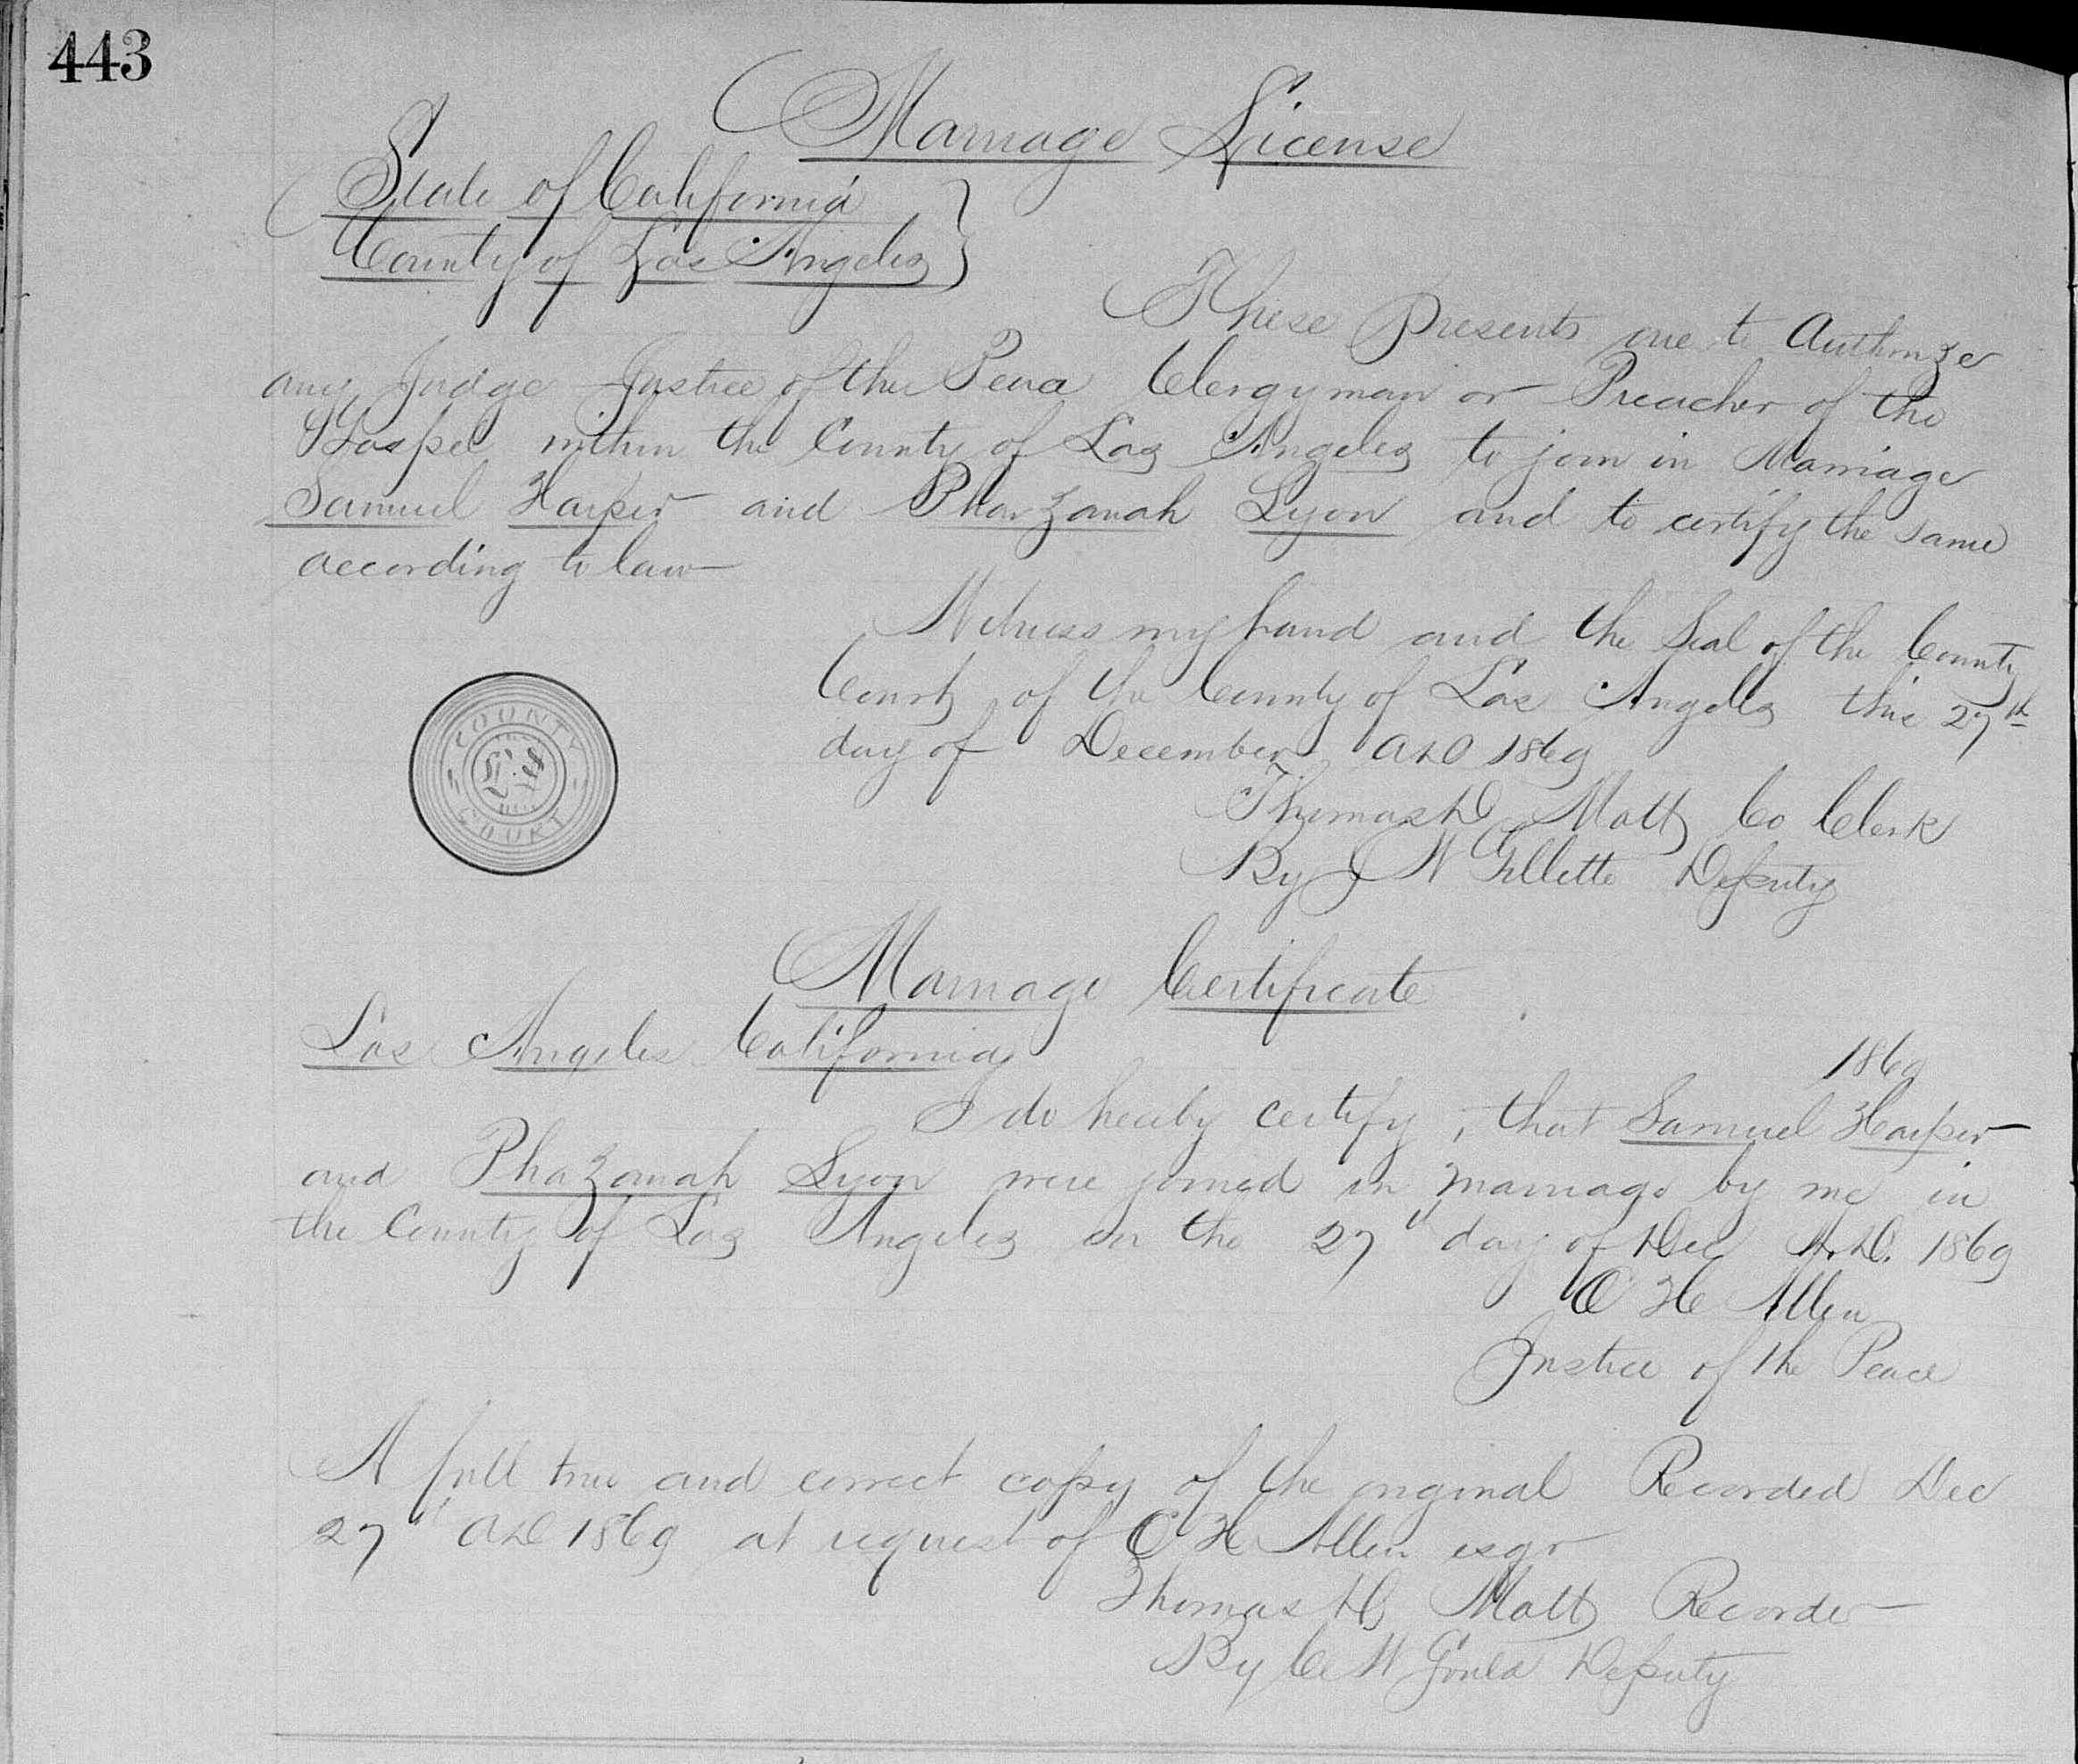 443
Marriage License
State of California
County of Los Angeles
These Presents are to Authorize
any Judge Justice of the Peace Clergyman or Preacher of the
Gospel within the County of Los Angeles to join in Marriage
Samuel Harper and Pharzanah Lyon and to certify the same
according to law
Witness my hand and the Seal of the County
Court of the County of Los Angeles this 27th
day of December AD 1869
COUNTY
L.S.
COURT
Thomas D Mott Co Clerk
By J W Gillette Deputy
Marriage Certificate
Los Angeles California
1869
I do hereby certify, that Samuel Harper
and Phazanah Lyon were joined in marriage by me in
the County of Los Angeles on the 27" day of Dec A.D. 1869
O H Allen
Justice of the Peace
A full true and correct copy of the original Recorded Dec
27" AD 1869 at request of O H Allen esqr
Thomas D Mott Recorder
By C W Gould Deputy